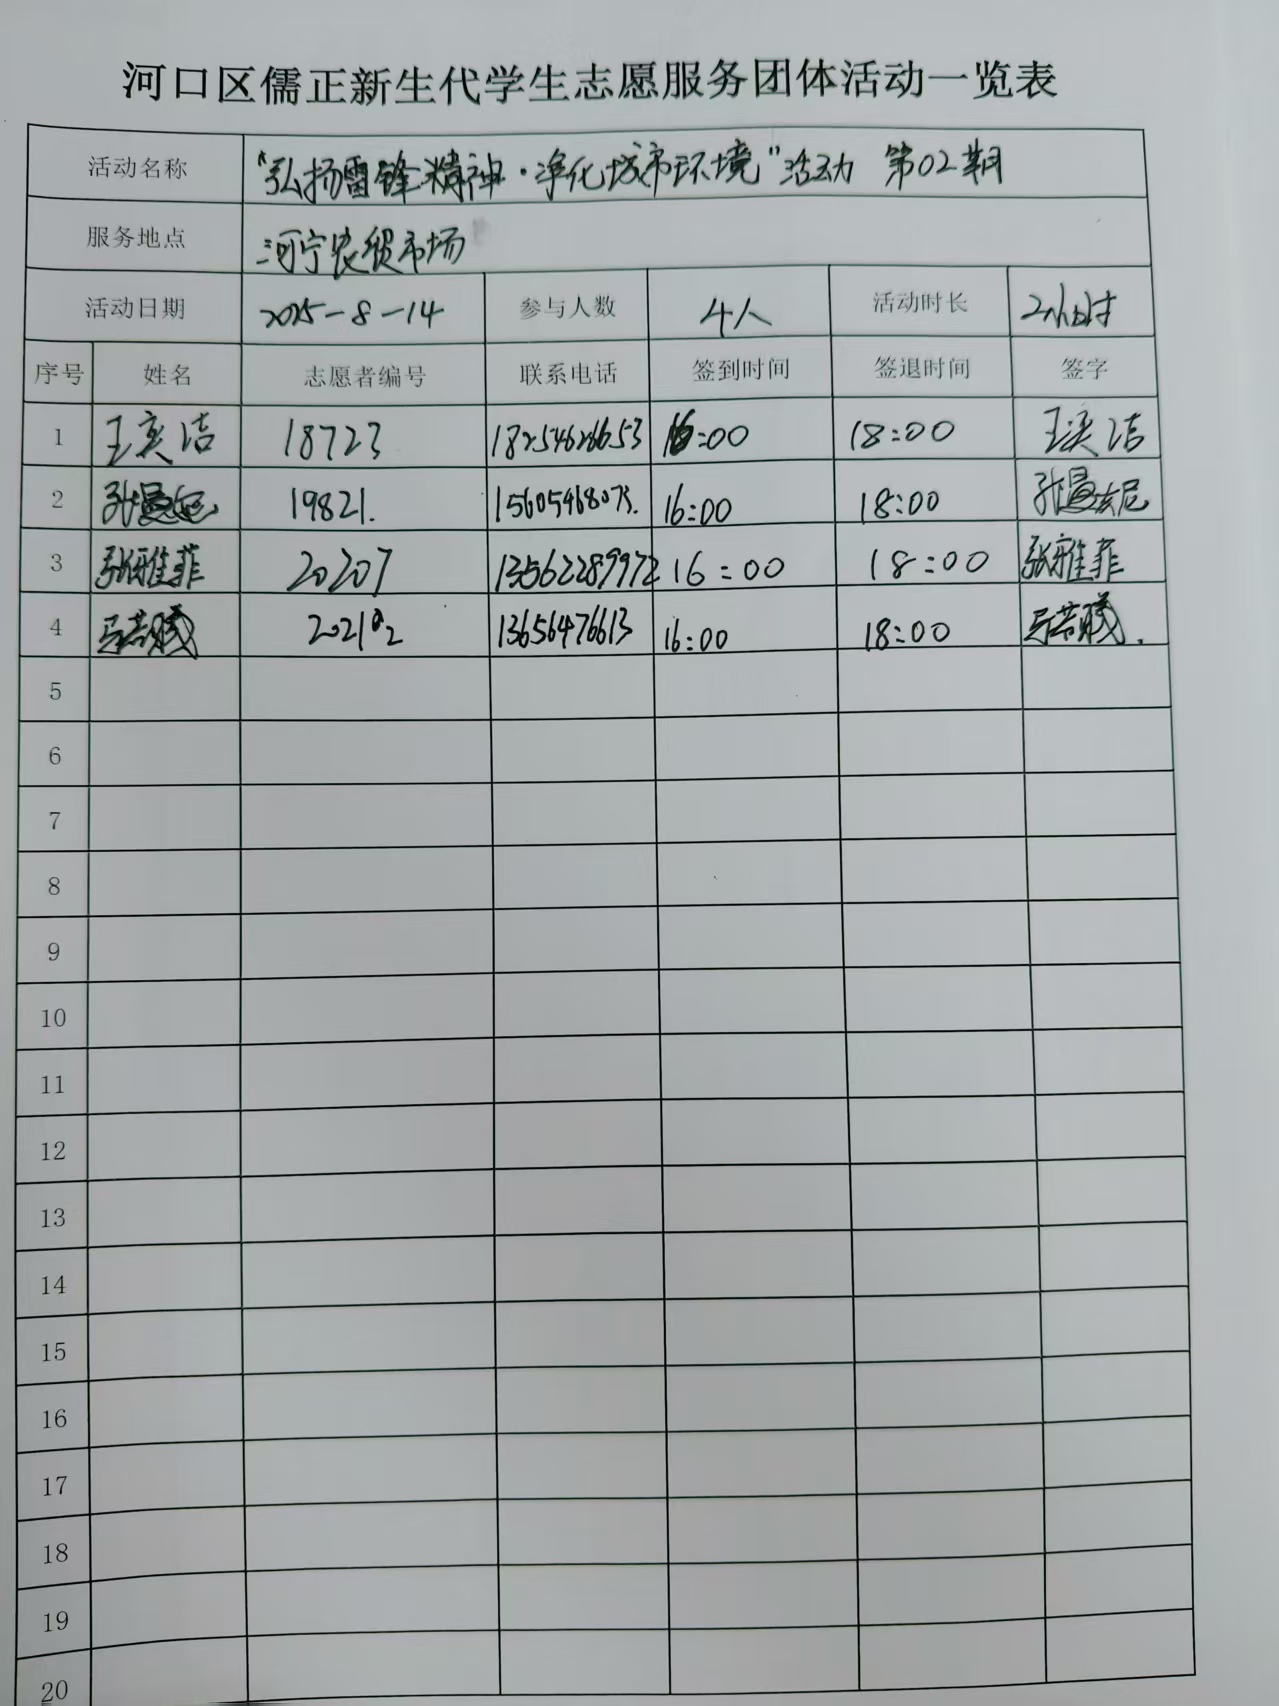 河口区儒正新生代学生志愿服务团体活动一览表
活动名称 “弘扬雷锋精神·净化城市环境”活动 第02期
服务地点 河宁农贸市场
活动日期 2025-8-14 参与人数 4人 活动时长 2小时
序号 姓名 志愿者编号 联系电话 签到时间 签退时间 签字
1 王奕洁 18723 18254626653 16:00 18:00 王奕洁
2 19821. 15605468073. 16:00 18:00
3 张雅菲 20207 13562289972 16:00 18:00 张雅菲
4 13656476613 16:00 18:00
5
6
7
8
9
10
11
12
13
14
15
16
17
18
19
20